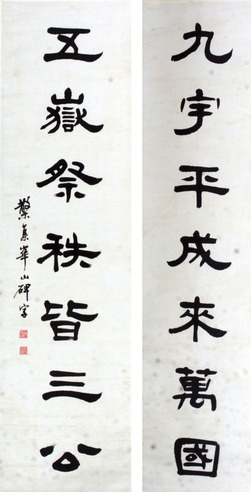 九宇平成來萬國
五嶽祭秩皆三公
集華山碑字